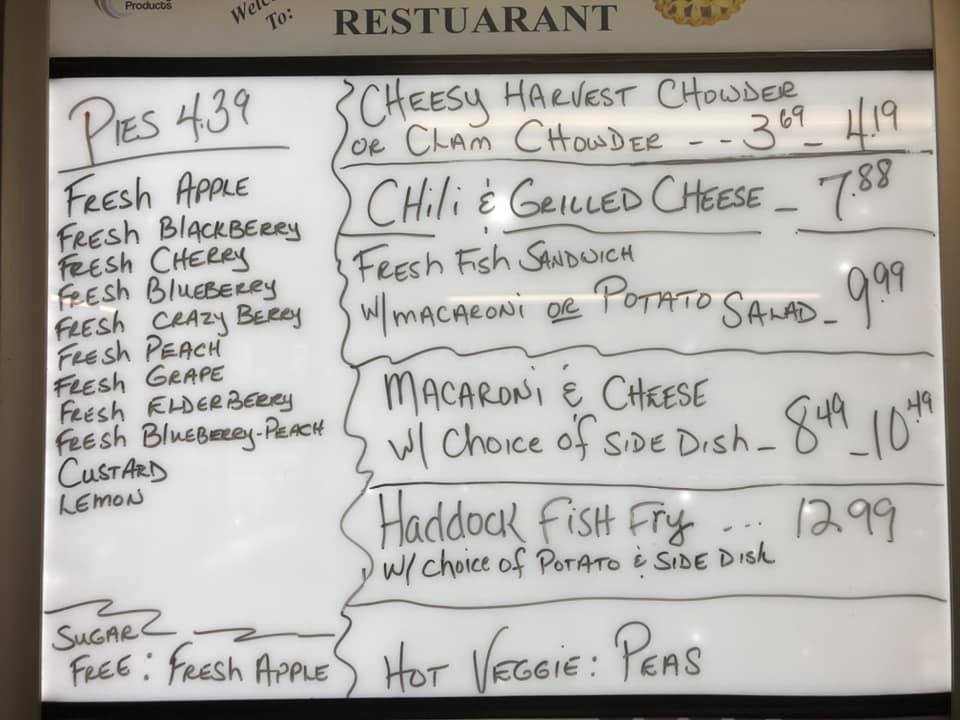 Products
To:
RESTUARANT
PIES 4.39
FRESH APPLE
FRESH BLACKBERRY
FRESH CHERRY
FRESH BLUEBERRY
FRESH CRAZY BERRY
FRESH PEACH
FRESH GRAPE
FRESH ELDERBERRY
FRESH BLUEBERRY-PEACH
CUSTARD
LEMON
SUGAR
FREE: FRESH APPLE
CHEESY HARVEST CHOWDER
OR CLAM CHOWDER -- 3.69 - 4.19
CHILI & GRILLED CHEESE - 7.88
FRESH FISH SANDWICH
W/MACARONI OR POTATO SALAD - 9.99
MACARONI & CHEESE
W/ CHOICE OF SIDE DISH - 8.49 - 10.49
HADDOCK FISH FRY ... 12.99
W/ CHOICE OF POTATO & SIDE DISH
HOT VEGGIE: PEAS